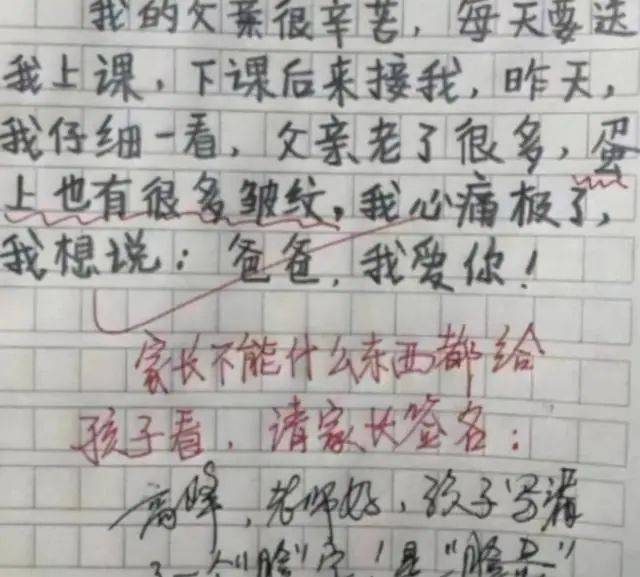 我的父亲很辛苦，每天要送
我上课，下课后来接我，昨天，
我仔细一看，父亲老了很多，蛋
上也有很多皱纹，我心痛极了，
我想说：爸爸，我爱你！
家长不能什么东西都给
孩子看，请家长签名：
高峰，老师好，孩子写漏
了一个"脸"字！是"脸蛋"